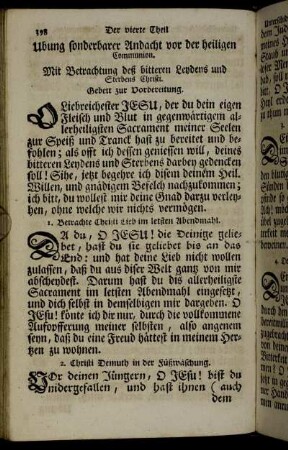 198 Der vierte Theil
Ubung sonderbarer Andacht vor der heiligen
Communion.
Mit Betrachtung deß bitteren Leydens und
Sterbens Christi.
Gebett zur Vorbereitung.
O Liebreichester JESU, der du dein eigen
Fleisch und Blut in gegenwärtigem al-
lerheiligsten Sacrament meiner Seelen
zur Speiß und Tranck hast zu bereitet und be-
fohlen; als offt ich dessen geniessen will, deines
bitteren Leydens und Sterbens darbey gedencken
soll! Sihe, jetzt begehre ich disem deinem Heil.
Willen, und gnädigem Befelch nachzukommen;
ich bitt, du wollest mir deine Gnad darzu verley-
hen, ohne welche wir nichts vermögen.
1. Betrachte Christi Lieb im letsten Abendmahl.
DA du, O JESU! die Deinige gelie-
bet, hast du sie geliebet bis an das
End: und hat deine Lieb nicht wollen
zulassen, daß du aus diser Welt ganz von mir
abscheydest. Darum hast du dis allerheiligste
Sacrament im letsten Abendmahl eingesetzt,
und dich selbst in demselbigen mir dargeben. O
JEsu! könte ich dir nur, durch die vollkommene
Aufopfferung meiner selbsten, also angenem
seyn, daß du eine Freud hättest in meinem Her-
tzen zu wohnen.
2. Christi Demuth in der Fußwaschung.
VOr deinen Jüngern, O JEsu! bist du
nidergefallen, und hast ihnen (auch
dem